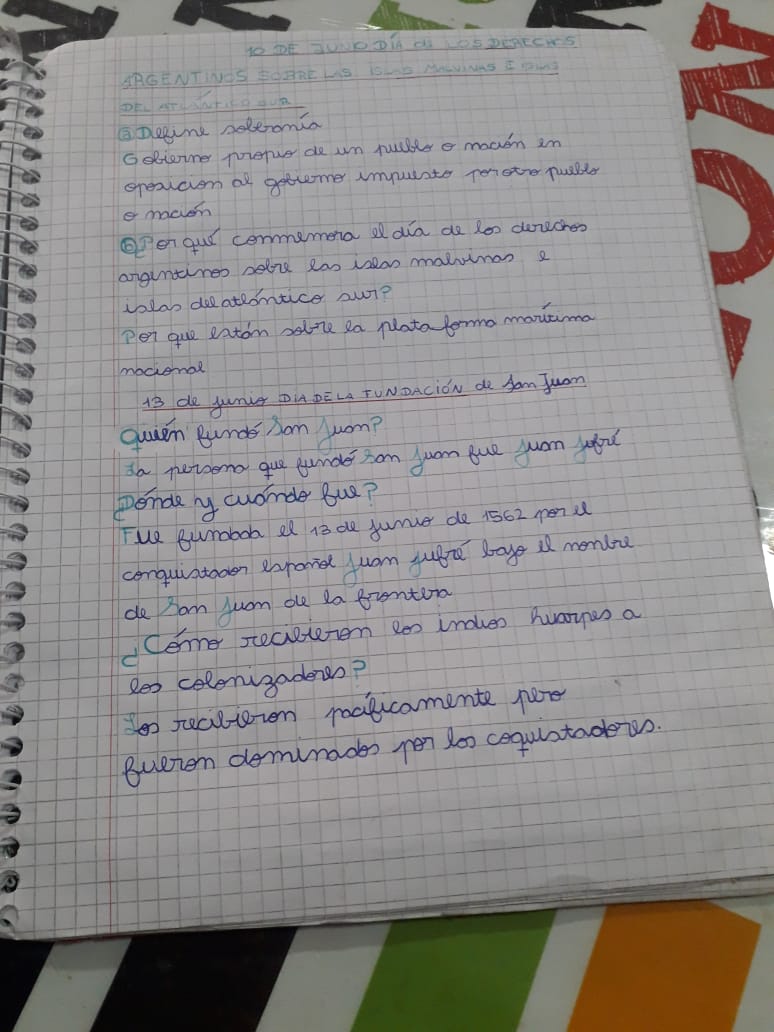 10 DE JUNO DÍA de LOS DERECHOS
ARGENTINOS SOBRE LAS ISLAS MALVINAS E ISLAS
DEL ATLÁNTICO SUR
a Define soberanía
Gobierno propio de un pueblo o nación en
oposicion al gobierno impuesto por otro pueblo
o nación
b Por qué conmemora el día de los derechos
argentinos sobre las islas malvinas e
islas del atlántico sur?
Por que están sobre la plata forma marítima
nacional
13 de junio DIA DE LA FUNDACIÓN de San Juan
Quién fundó San Juan?
La persona que fundó San Juan fue Juan Jufré
Dónde y cuándo fue?
Fue fundada el 13 de junio de 1562 por el
conquistador español Juan Jufré bajo el nombre
de San Juan de la frontera
¿Cómo recibieron los indios huarpes a
los colonizadores?
Los recibieron pacíficamente pero
fueron dominados por los coquistadores.